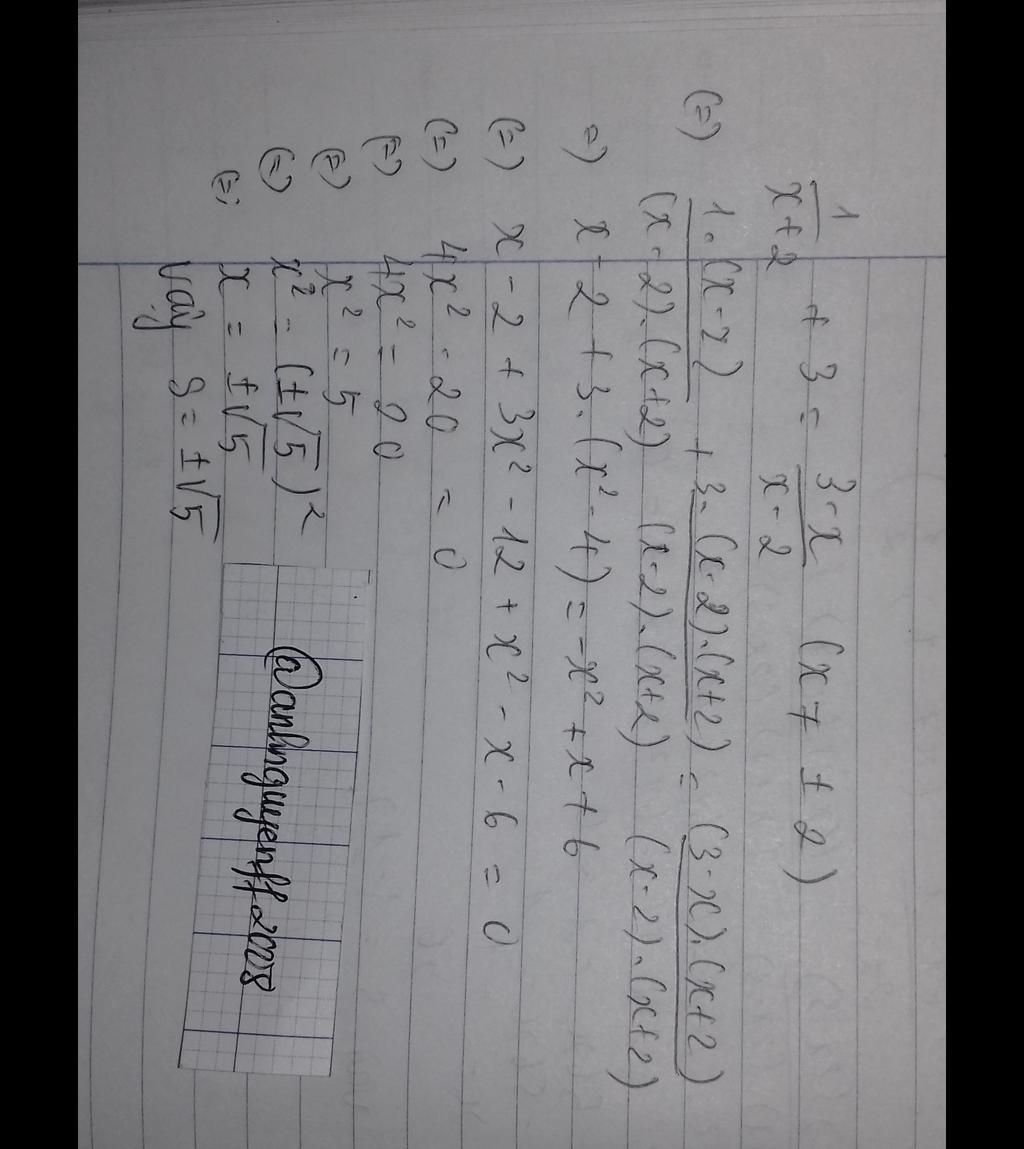 1/(x+2) + 3 = (3-x)/(x-2) (x ≠ ± 2)
(=) 1.(x-2)/(x-2).(x+2) + 3.(x-2).(x+2)/(x-2).(x+2) = (3-x).(x+2)/(x-2).(x+2)
=) x-2 + 3.(x²-4) = -x² + x + 6
(=) x - 2 + 3x² - 12 + x² - x - 6 = 0
(=) 4x² - 20 = 0
(=) 4x² = 20
(=) x² = 5
(=) x² = (±√5)²
(=) x = ±√5
Vậy S = ±√5
@anhnguyenff2008